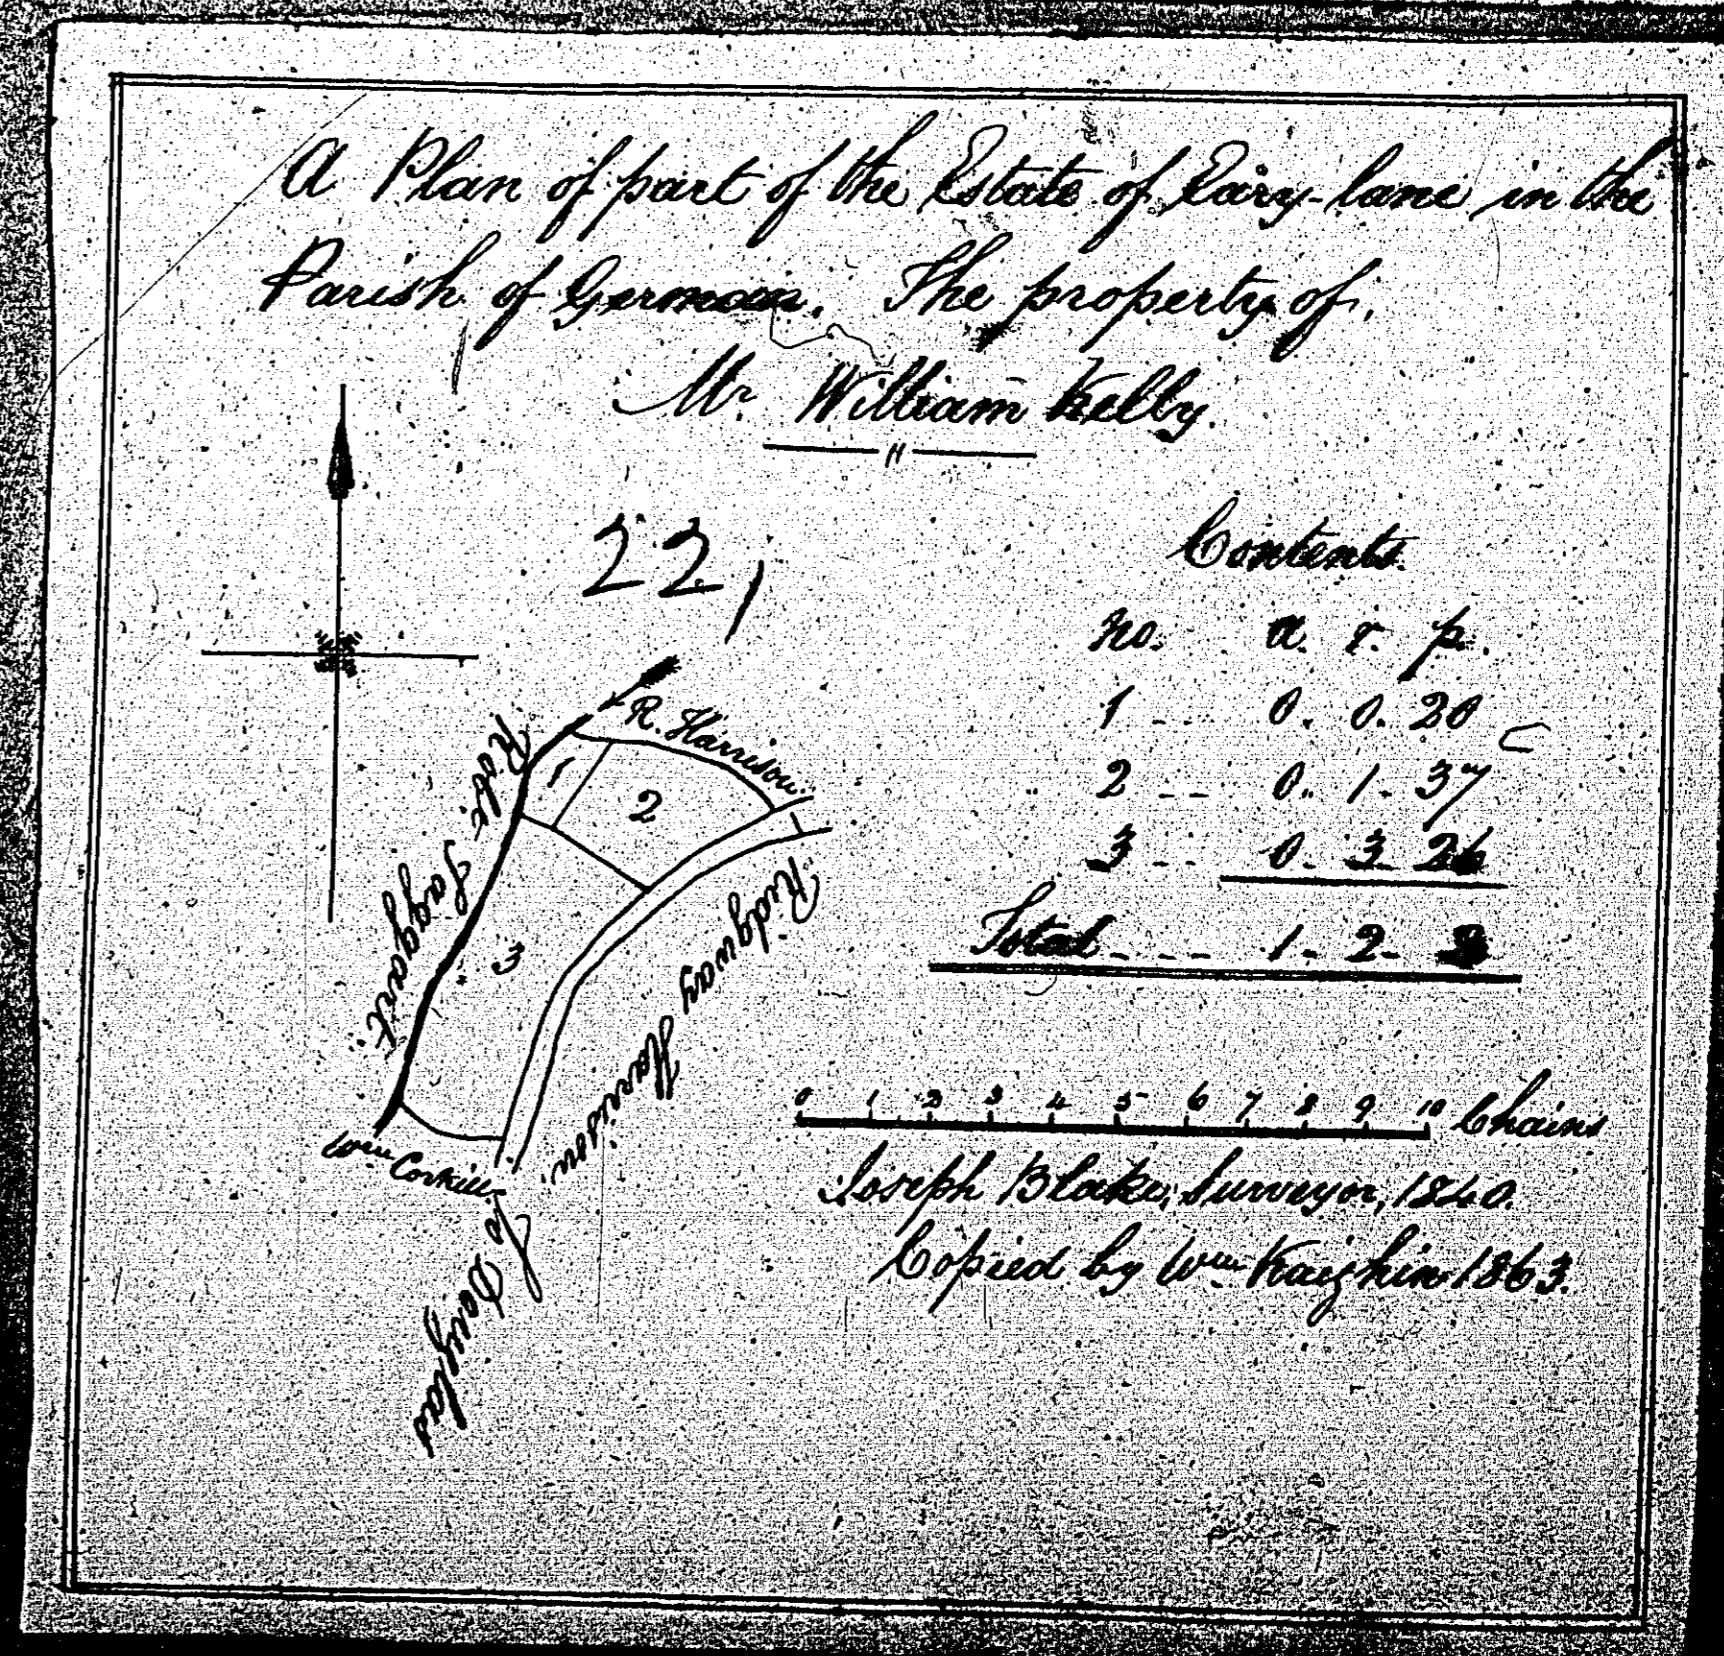 A Plan of part of the Estate of Rary-lane in the
Parish of German. The property of,
Mr. William Kelly.
22,
Contents.
No. a. r. p.
1 - - 0. 0. 20
2 - - 0. 1. 37
3 - - 0. 3. 26
Total - - - - 1. 2. 3
R. Harrison.
1
2
3
Robt. Taggart.
Ridgway Harrison.
Wm. Corkill
To Douglas
0 1 2 3 4 5 6 7 8 9 10 Chains
Joseph Blake, Surveyor, 1840.
Copied by Wm Kaighin 1863.